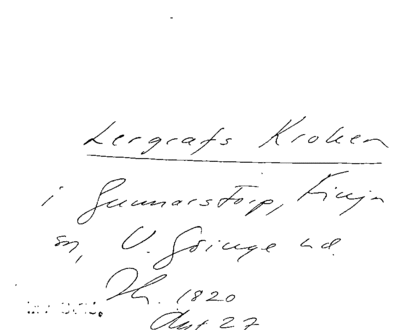 Lergrafs Kroken
i Gunnarstorp, Finja
sn, V. Göinge hd.
Th. 1820
Akt 27